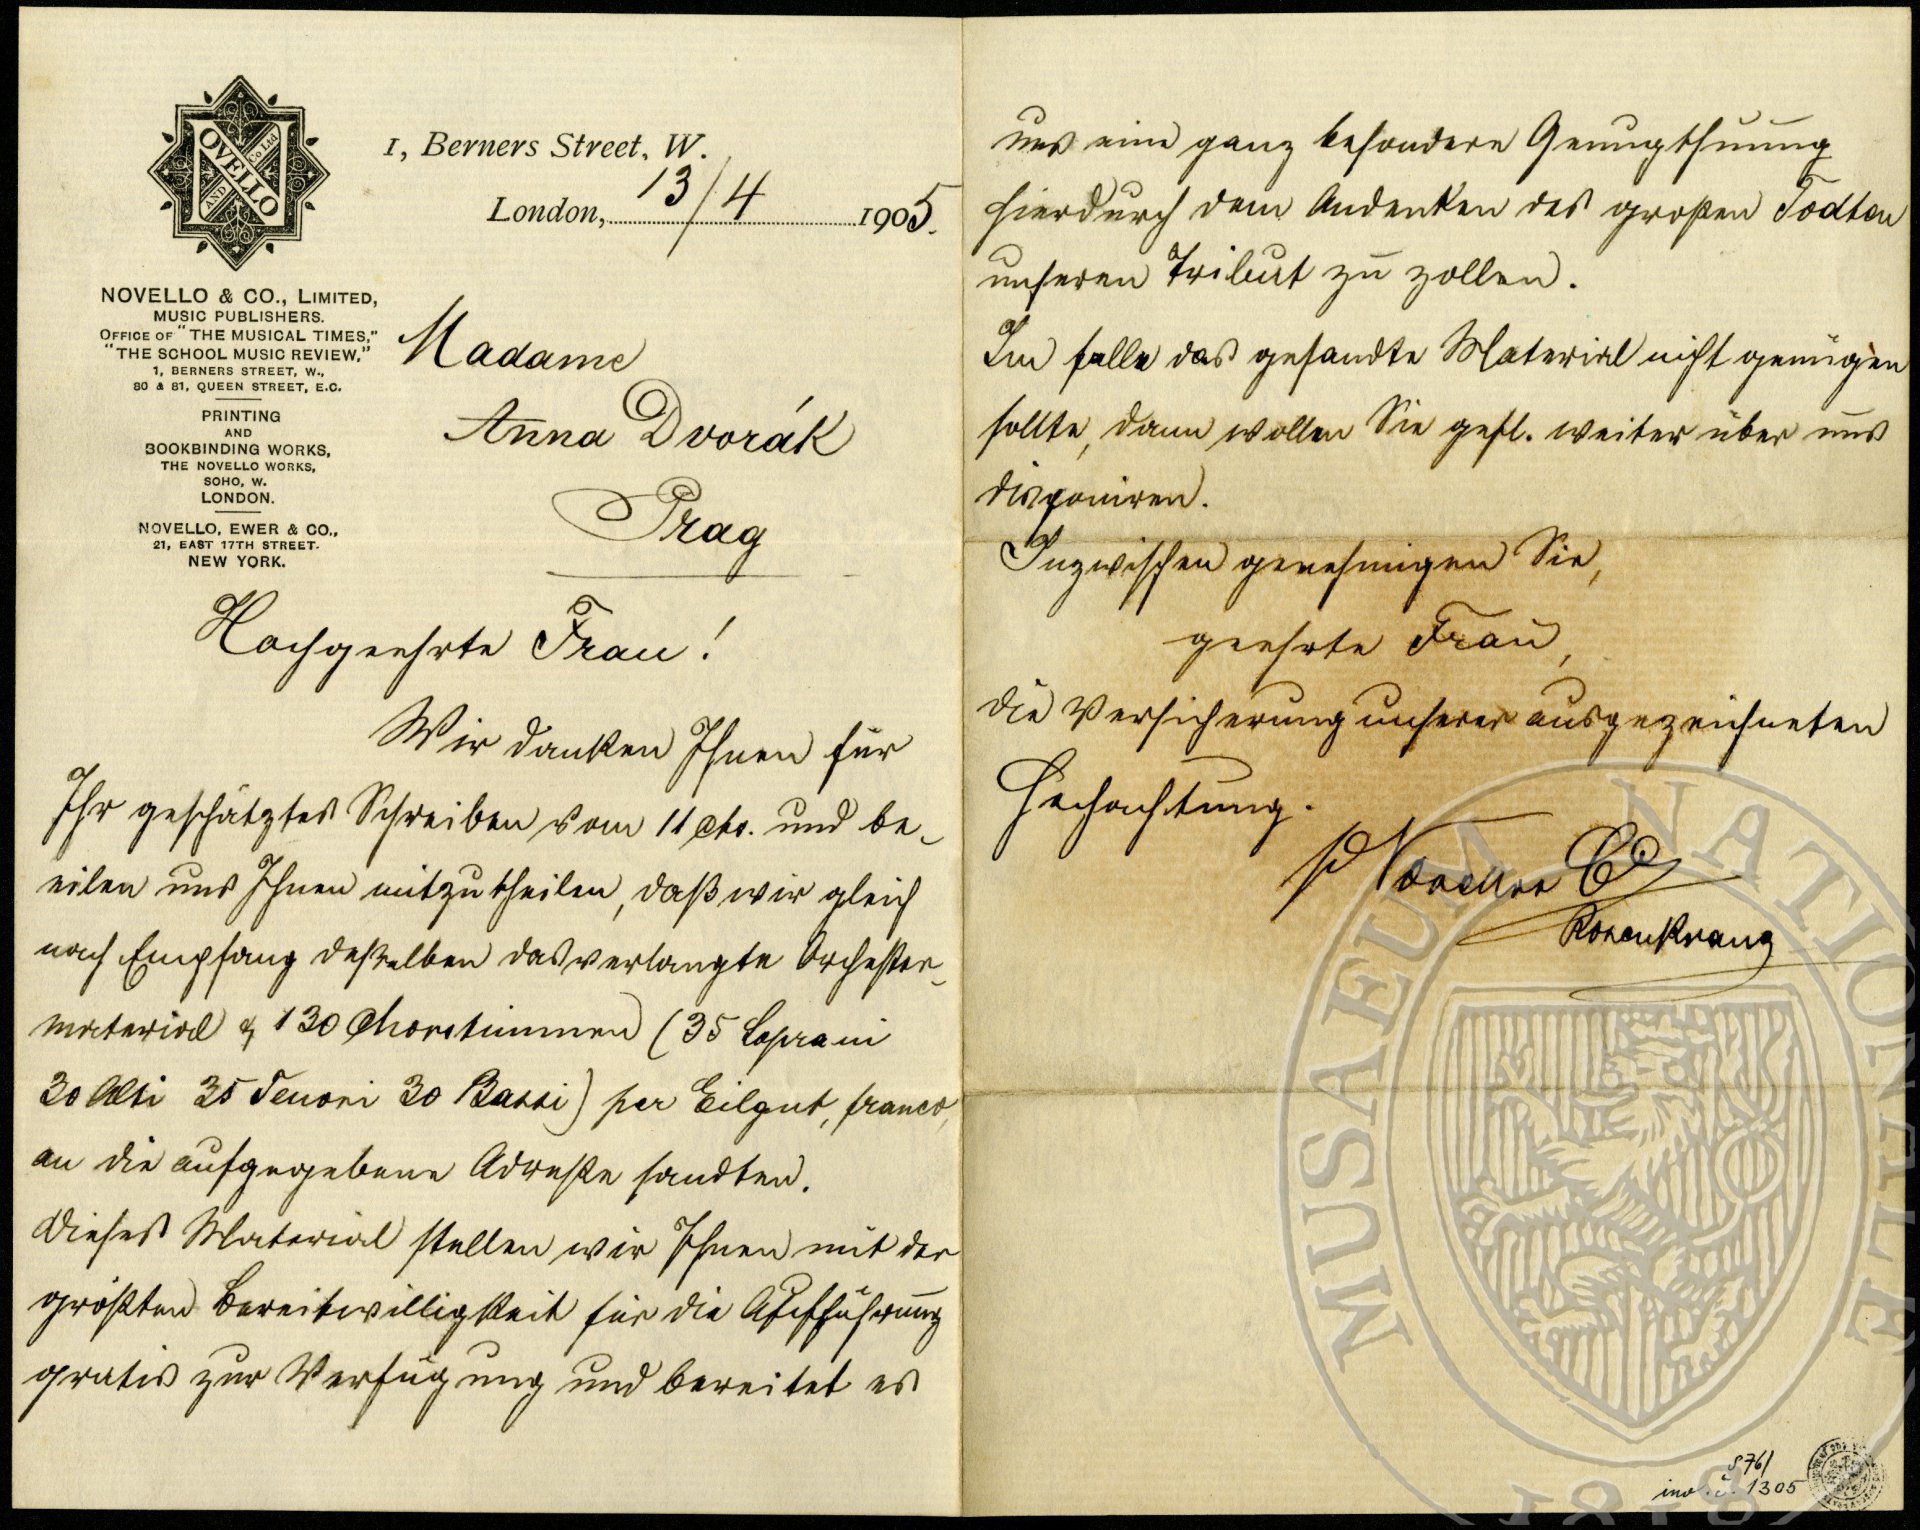 NOVELLO
AND
Co Ltd
1, Berners Street, W.
London, 13/4 1905.
NOVELLO & CO., LIMITED,
MUSIC PUBLISHERS.
OFFICE OF "THE MUSICAL TIMES,"
"THE SCHOOL MUSIC REVIEW,"
1, BERNERS STREET, W.,
80 & 81, QUEEN STREET, E.C.
PRINTING
AND
BOOKBINDING WORKS,
THE NOVELLO WORKS,
SOHO, W.
LONDON.
NOVELLO, EWER & CO.,
21, EAST 17TH STREET.
NEW YORK.
Madame
Anna Dvorák
Prag
Hochgeehrte Frau!
Wir danken Ihnen für
Ihr geschätztes Schreiben vom 11 cts. und be-
eilen uns Ihnen mitzutheilen, daß wir gleich
nach Empfang desselben das verlangte Orchester-
material & 130 Chorstimmen (35 Soprani
30 Alti 35 Tenori 30 Bassi) per Eilgut, franco,
an die aufgegebene Adreße sandten.
Dieses Material stellen wir Ihnen mit der
größten Bereitwilligkeit für die Aufführung
gratis zur Verfügung und bereitet es
uns eine ganz besondere Genugthuung
hierdurch dem Andenken des großen Todten
unseren Tribut zu zollen.
Im falle das gesandte Material nicht genügen
sollte, dann wollen Sie gefl. weiter über uns
disponiren.
Inzwischen genehmigen Sie,
geehrte Frau,
die Versicherung unserer ausgezeichneten
Hochachtung.
Novello Co
Rosenkranz
MUSAEUM NATIONALE
1818
S 76/
inv. č. 1305